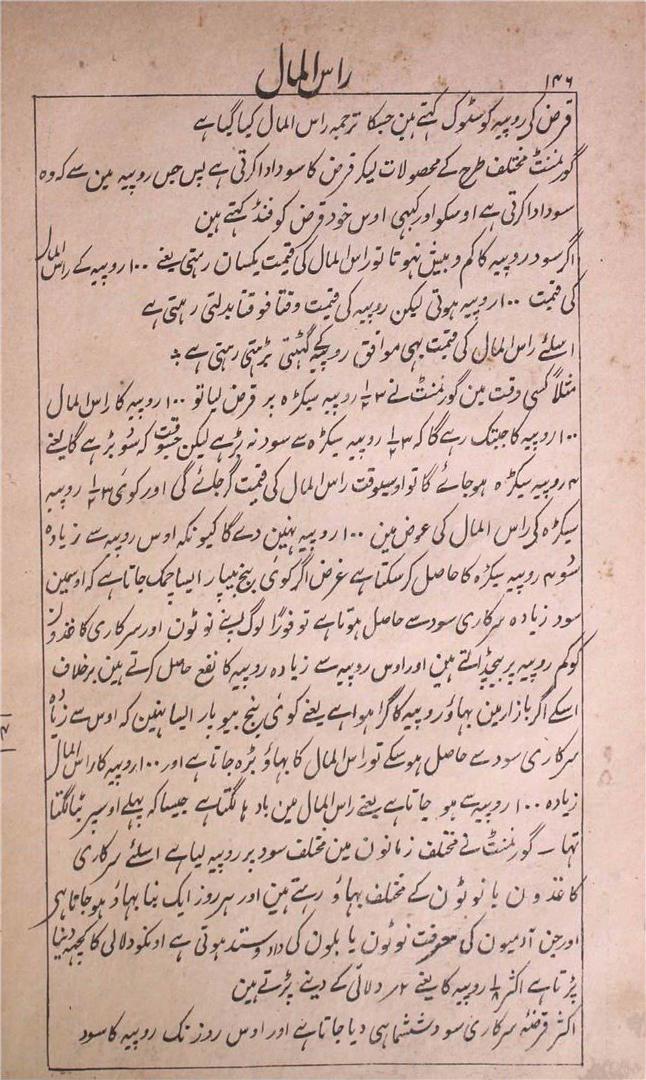 ۱۴۶
راس المال
قرض کی روپیہ کو سٹوک کہتے ہین جسکا ترجمہ راس المال کیا گیا ہے
گورنمنٹ مختلف طرح کے محصولات لیکر قرض کا سود ادا کرتی ہے پس جس روپیہ مین سے کہ وہ
سود ادا کرتی ہے اوسکو اور کبہی اوس خود قرض کو فنڈ کہتے ہین
اگر سود روپیہ کا کم و بیش نہوتا تو راس المال کی قیمت یکسان رہتی یعنے ۱۰۰ روپیہ کے راس المال
کی قیمت ۱۰۰ روپیہ ہوتی لیکن روپیہ کی قیمت وقتا فوقتا بدلتی رہتی ہے
اسلئے راس المال کی قیمت بہی موافق روپیہ کے گھٹتی بڑہتی رہتی ہے
مثلاً کسی وقت مین گورنمنٹ نے ۳ ۱/۲ روپیہ سیکڑہ پر قرض لیا تو ۱۰۰ روپیہ کا راس المال
۱۰۰ روپیہ کا جبتک رہے گا کہ ۳ ۱/۲ روپیہ سیکڑہ سے سود نہ بڑہے لیکن جسوقت کہ سود بڑہے گا یعنے
۴ روپیہ سیکڑہ ہو جائے گا تو اوسیوقت راس المال کی قیمت گر جائے گی اور کوئی ۳ ۱/۲ روپیہ
سیکڑہ کی راس المال کی عوض مین ۱۰۰ روپیہ نہین دے گا کیونکہ اوس روپیہ سے زیادہ
سود ۴ روپیہ سیکڑہ کا حاصل کر سکتا ہے غرض اگر کوئی بنج بیپار ایسا چمک جاتا ہے کہ اوسمین
سود زیادہ سرکاری سود سے حاصل ہوتا ہے تو فوراً لوگ اپنے نوٹون اور سرکاری کاغذون
کو کم روپیہ پر بیچ ڈالتے ہین اور اوس روپیہ سے زیادہ روپیہ کا نفع حاصل کرتے ہین برخلاف
اسکے اگر بازار مین بہاؤ روپیہ کا گرا ہوا ہے یعنے کوئی بنج بیوپار ایسا نہین کہ اوس سے زیادہ
سرکاری سود سے حاصل ہو سکے تو راس المال کا بہاؤ بڑہ جاتا ہے اور ۱۰۰ روپیہ کا راس المال
زیادہ ۱۰۰ روپیہ سے ہو جاتا ہے یعنے راس المال مین بادہا لگتا ہے جیسا کہ پہلے اوسپر بٹا لگتا
تہا ۔ گورنمنٹ نے مختلف زمانون مین مختلف سود پر روپیہ لیا ہے اسلئے سرکاری
کاغذون یا نوٹون کے مختلف بہاؤ رہتے ہین اور ہر روز ایک نیا بہاؤ ہو جاتا ہی
اور جن آدمیون کی معرفت نوٹون یا بلون کی داد و ستد ہوتی ہے اونکو دلالی کا کچہہ دینا
پڑتا ہے اکثر ۱/۸ روپیہ کا یعنے ۲ دلالی کے دینے پڑتے ہین
اکثر قرضۂ سرکاری سود ششماہی دیا جاتا ہے اور اوس روز تک روپیہ کا سود